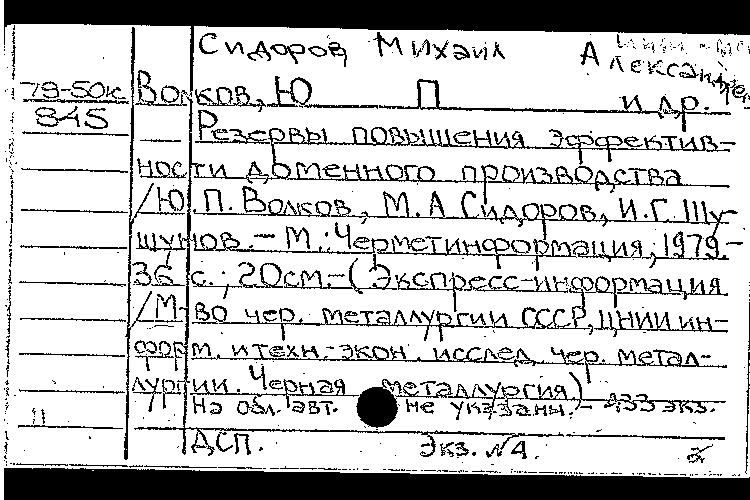 Сидоров, Михаил Александрович
79-50к Волков, Ю П и др.
845 Резервы повышения эффектив-
ности доменного производства
/Ю.П. Волков, М.А Сидоров, И.Г. Шу-
шунов.-М.: Черметинформация, 1979.-
36 с.; 20см.-(Экспресс-информация
/М-во чер. металлургии СССР, ЦНИИ ин-
форм. и техн.-экон. исслед. чер. метал-
лургии. Черная металлургия)
11 на обл. авт. не указаны.- 433 экз.
ДСП. Экз. №4.